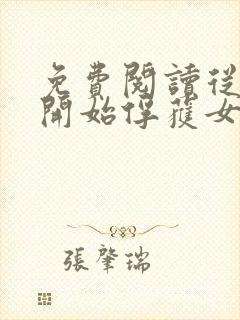 免費閱讀從
開始俘獲女
張肇瑞